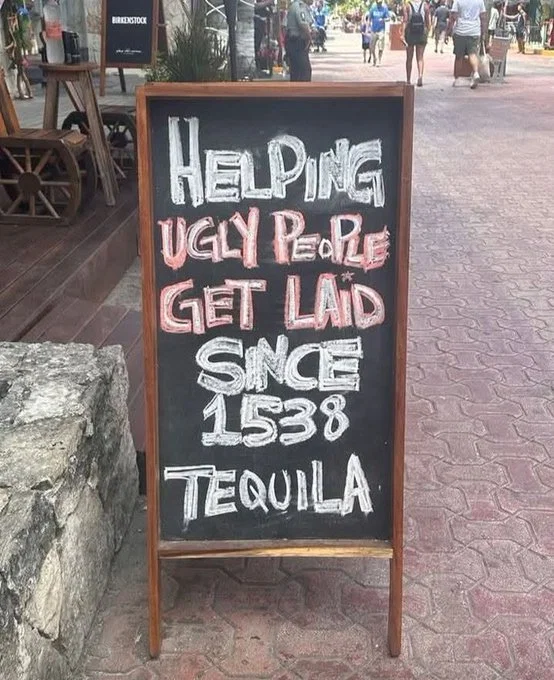 BIRKENSTOCK
HELPING
UGLY PEOPLE
GET LAID
SINCE
1538
TEQUILA